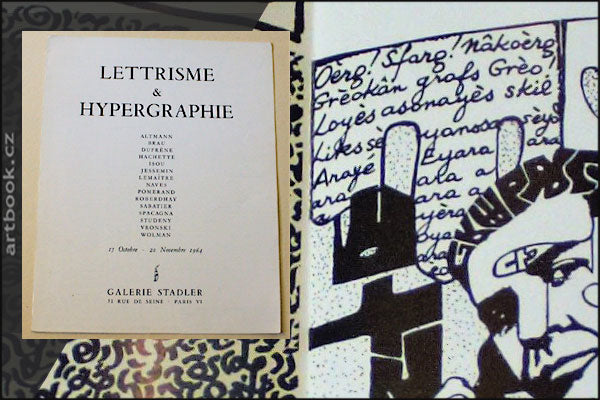 artbook.cz
LETTRISME
&
HYPERGRAPHIE
ALTMANN
BRAU
DUFRÊNE
HACHETTE
ISOU
JESSEMIN
LEMAÎTRE
NAVES
POMERAND
ROBERDHAY
SABATIER
SPACAGNA
STUDENY
VRONSKI
WOLMAN
17 Octobre - 21 Novembre 1964
GALERIE STADLER
51 RUE DE SEINE - PARIS VI
Oèrg! Sfarg! Nâkoèrg
Grèokân grafs Grèo!
Loyès asonayès skil
Litessè yanossa sèyo
Arayé Eyara ara
ara ara a